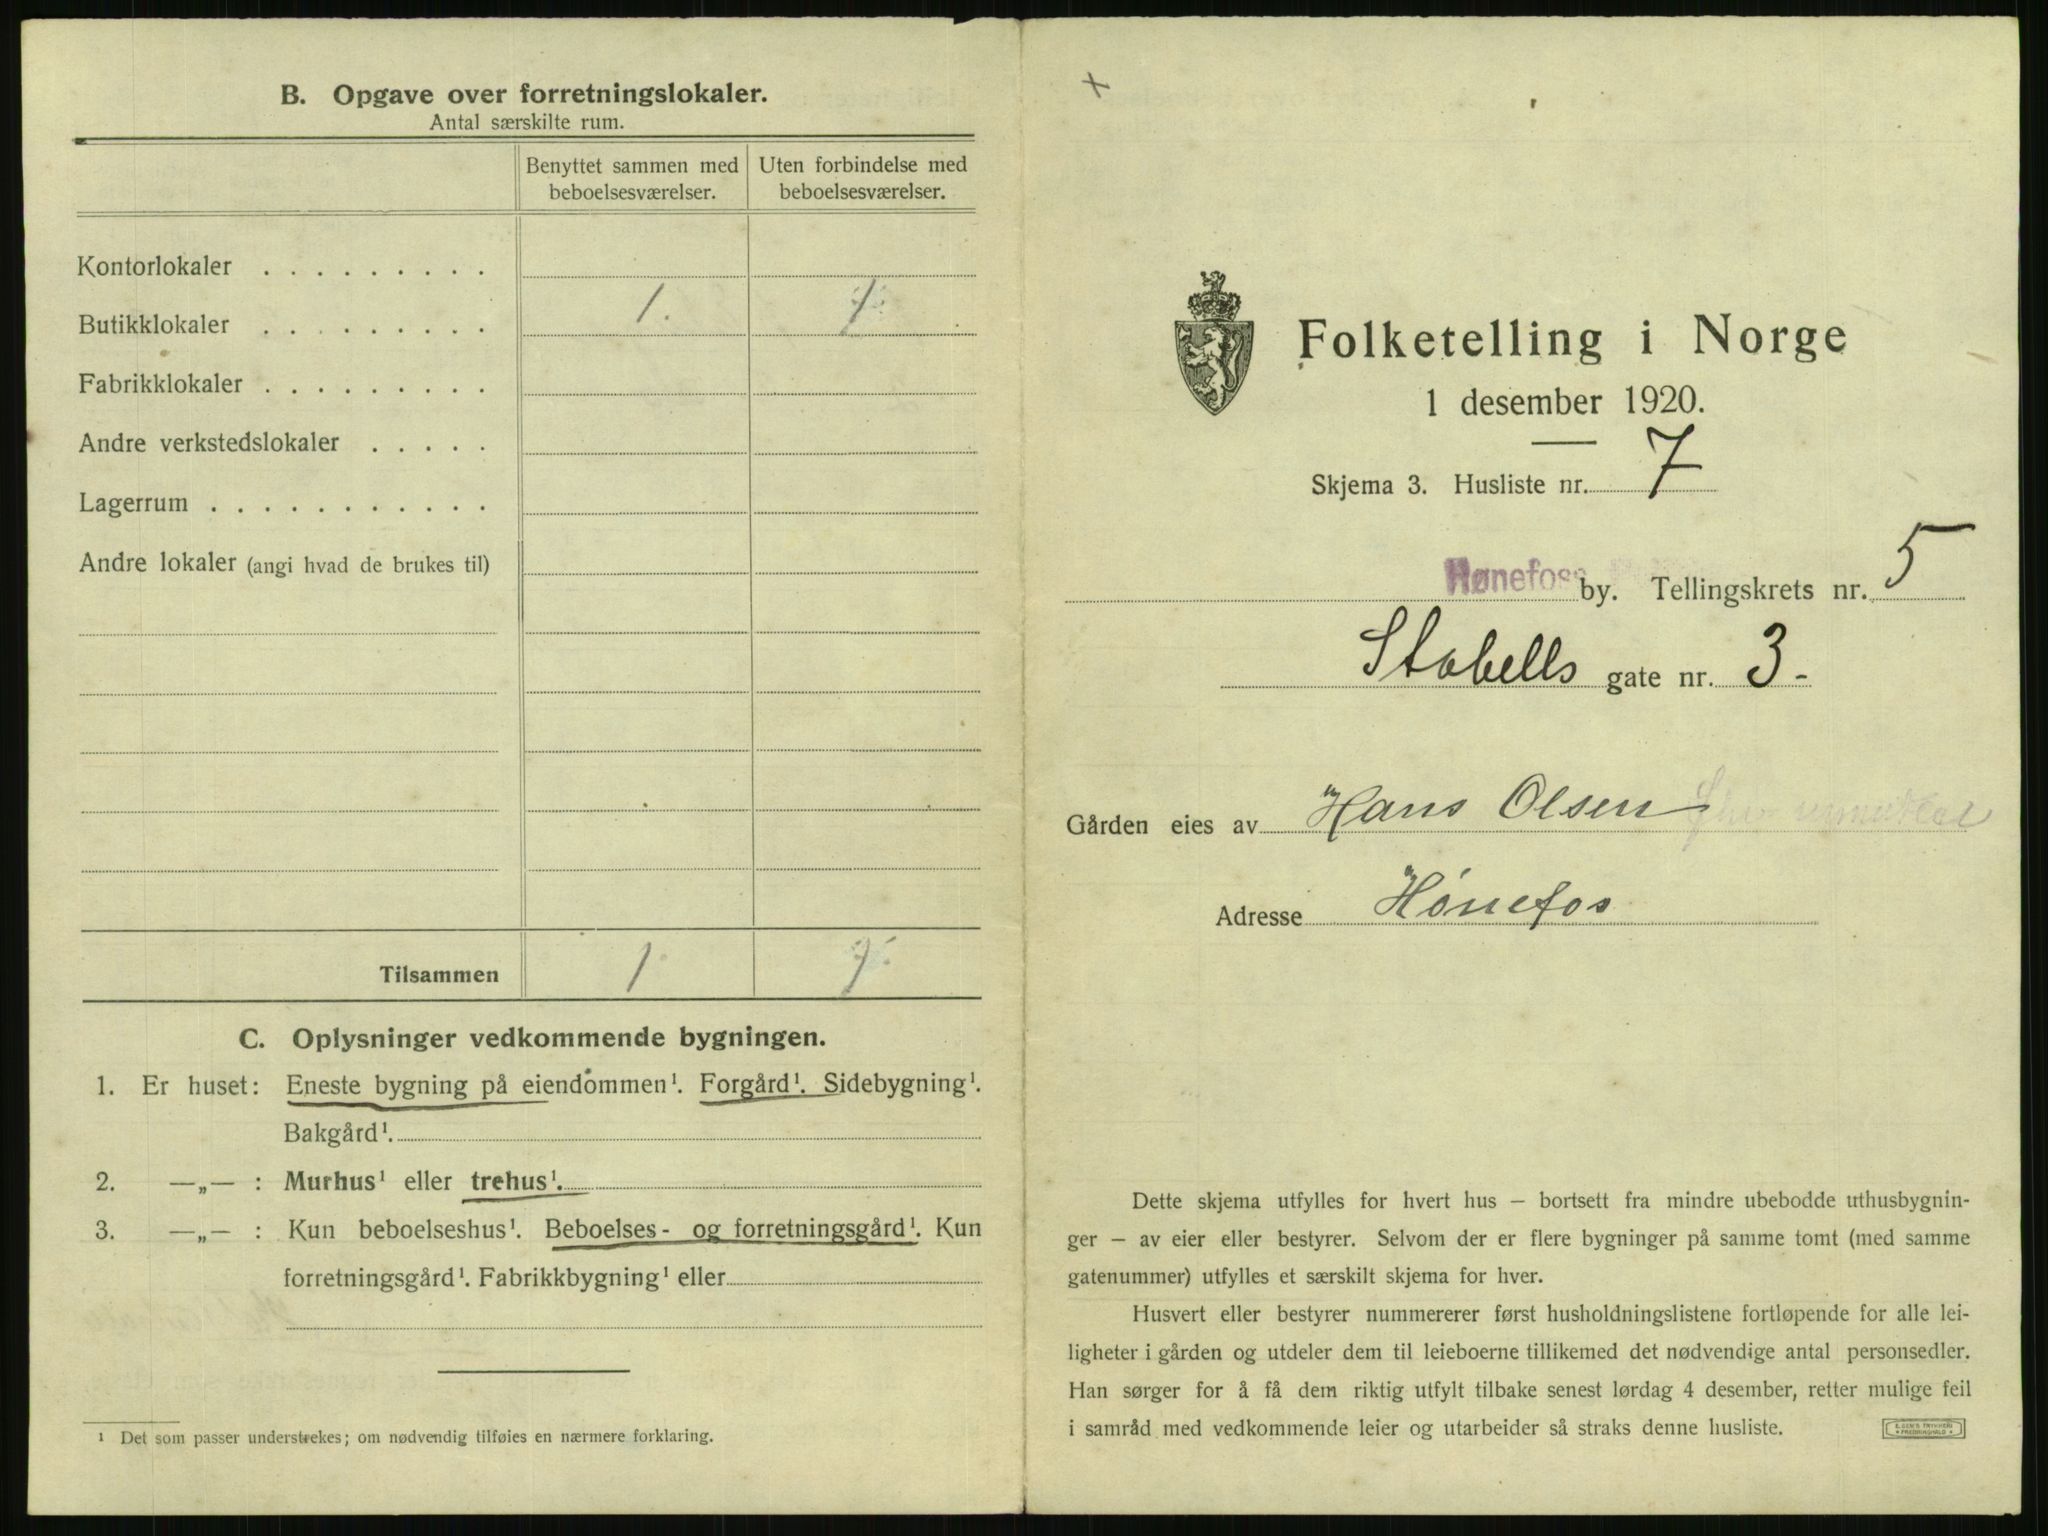 B. Opgave over forretningslokaler.
Antal særskilte rum.
Benyttet sammen med beboelsesværelser.
Uten forbindelse med beboelsesværelser.
Kontorlokaler . . . . . . . . .
Butikklokaler . . . . . . . . . 1. 1
Fabrikklokaler . . . . . . . . .
Andre verkstedslokaler . . . . .
Lagerrum . . . . . . . . . . .
Andre lokaler (angi hvad de brukes til)
Tilsammen 1 1
C. Oplysninger vedkommende bygningen.
1. Er huset: Eneste bygning på eiendommen¹. Forgård¹. Sidebygning¹.
Bakgård¹.
2. —„— : Murhus¹ eller trehus¹.
3. —„— : Kun beboelseshus¹. Beboelses- og forretningsgård¹. Kun
forretningsgård¹. Fabrikkbygning¹ eller
¹ Det som passer understrekes; om nødvendig tilføies en nærmere forklaring.
Folketelling i Norge
1 desember 1920.
Skjema 3. Husliste nr. 7
Hønefoss by. Tellingskrets nr. 5
Stabells gate nr. 3-
Gården eies av Hans Olsen
Adresse Hønefos
Dette skjema utfylles for hvert hus – bortsett fra mindre ubebodde uthusbygnin-
ger – av eier eller bestyrer. Selvom der er flere bygninger på samme tomt (med samme
gatenummer) utfylles et særskilt skjema for hver.
Husvert eller bestyrer nummererer først husholdningslistene fortløpende for alle lei-
ligheter i gården og utdeler dem til leieboerne tillikemed det nødvendige antal personsedler.
Han sørger for å få dem riktig utfylt tilbake senest lørdag 4 desember, retter mulige feil
i samråd med vedkommende leier og utarbeider så straks denne husliste.